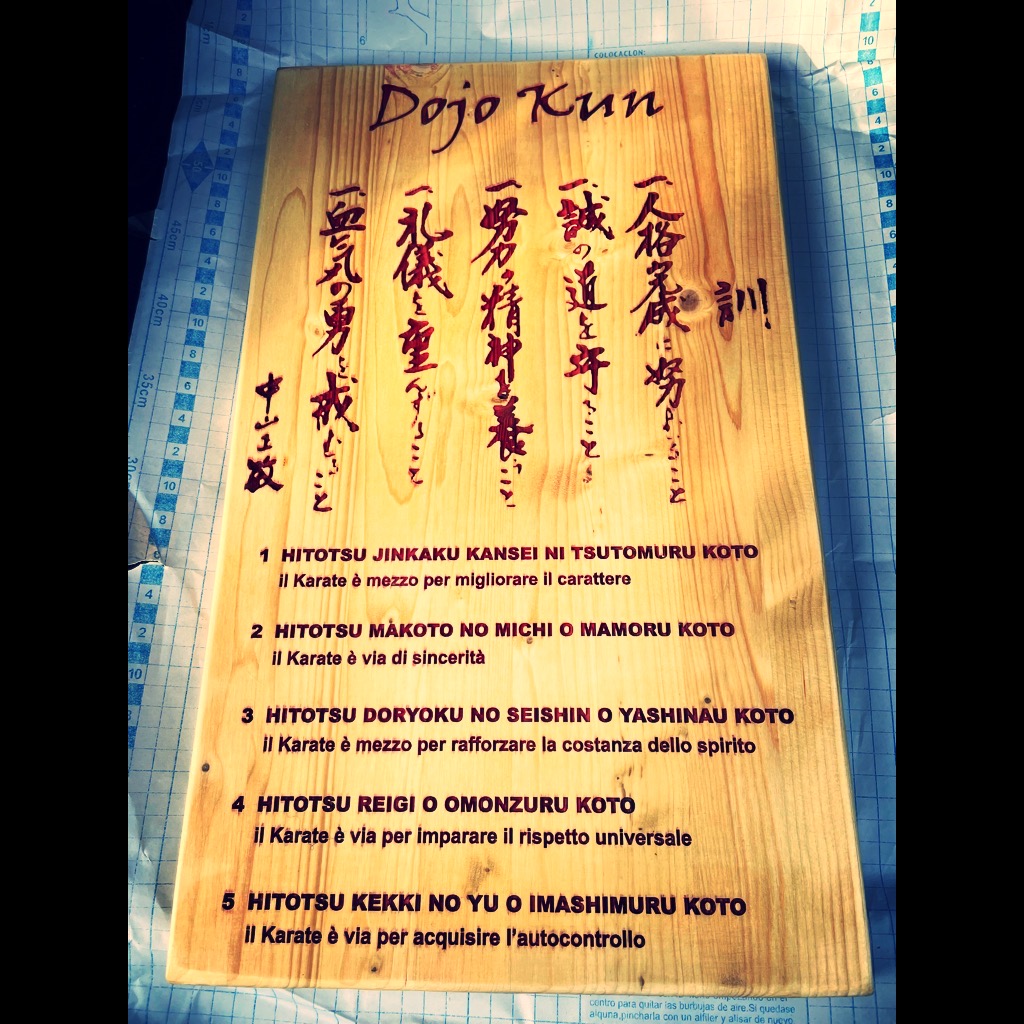 Dojo Kun
訓
一、人格完成に努むること
一、誠の道を守ること
一、努力の精神を養うこと
一、礼儀を重んずること
一、血気の勇を戒むること
中山正敏
1 HITOTSU JINKAKU KANSEI NI TSUTOMURU KOTO
il Karate è mezzo per migliorare il carattere
2 HITOTSU MAKOTO NO MICHI O MAMORU KOTO
il Karate è via di sincerità
3 HITOTSU DORYOKU NO SEISHIN O YASHINAU KOTO
il Karate è mezzo per rafforzare la costanza dello spirito
4 HITOTSU REIGI O OMONZURU KOTO
il Karate è via per imparare il rispetto universale
5 HITOTSU KEKKI NO YU O IMASHIMURU KOTO
il Karate è via per acquisire l'autocontrollo
COLOCACION:
45cm
40cm
35cm
30cm
contro para quitar las burbujas de aire.Si quedase
alguna,pincharla con un alfiler y alisar de nuevo